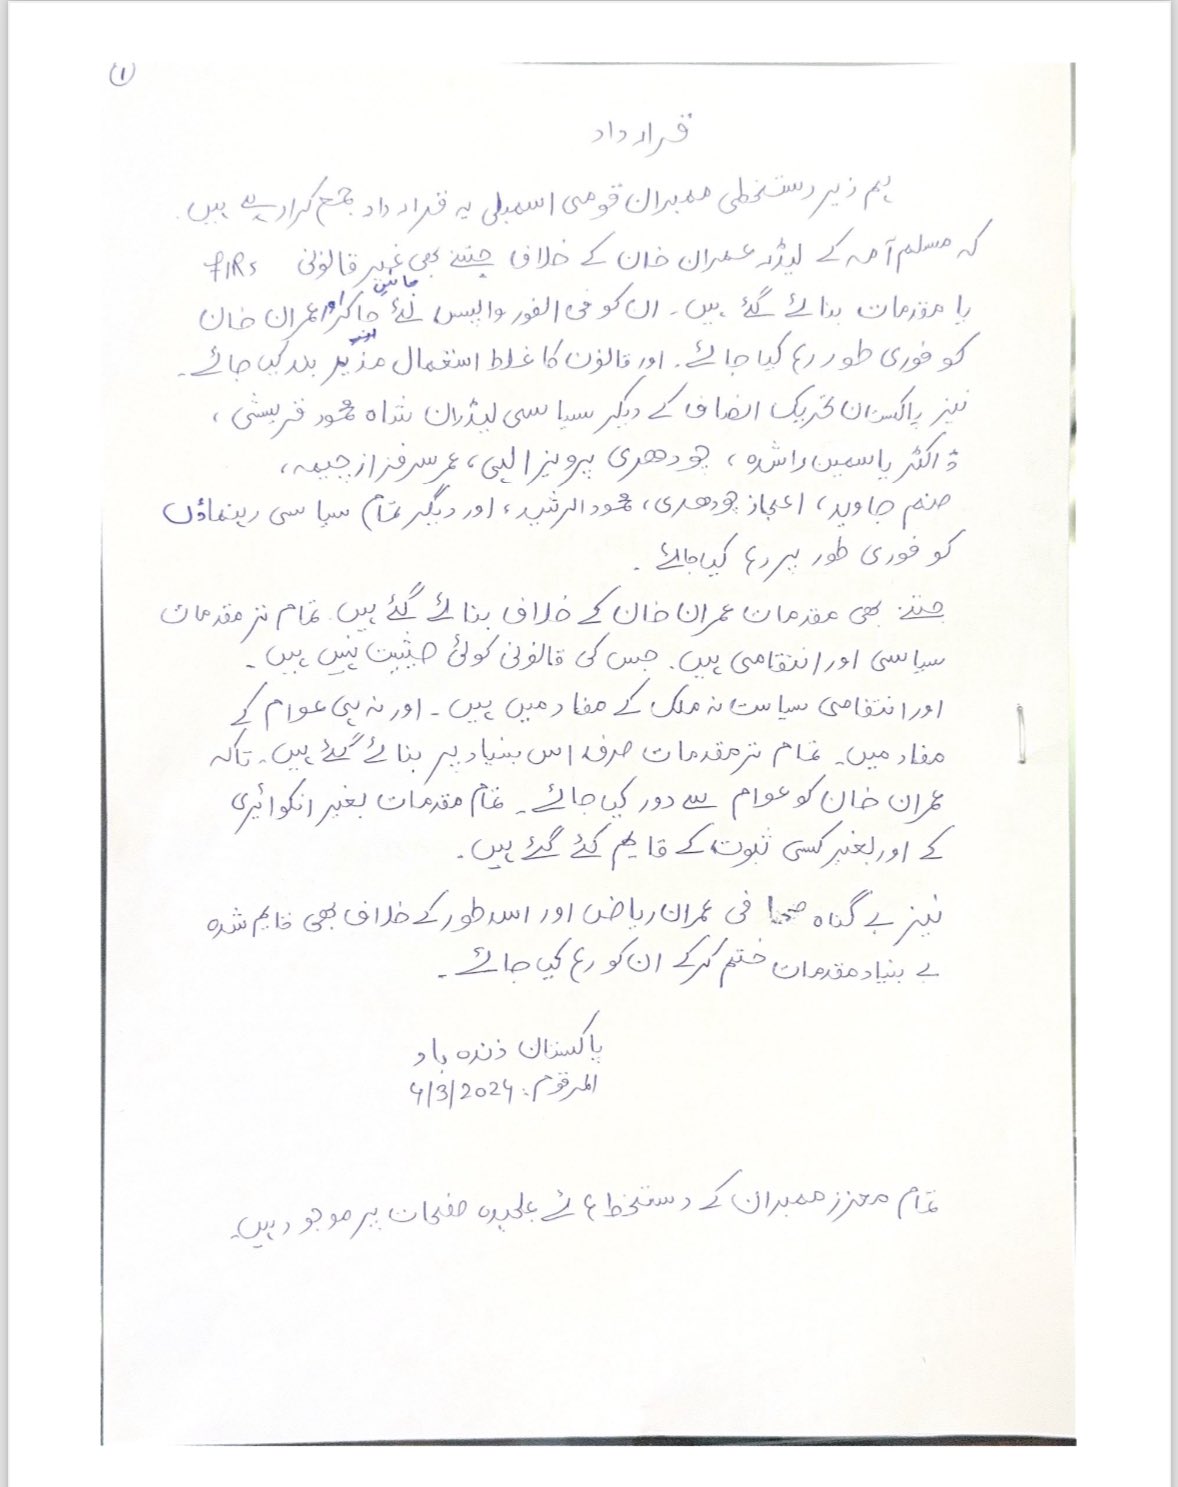 ①
قرار داد
ہم زیر دستخطی ممبران قومی اسمبلی یہ قرار داد جمع کرا رہے ہیں۔
کہ مسلم آمہ کے لیڈر عمران خان کے خلاف جتنے بھی غیر قانونی FIRs
یا مقدمات بنائے گئے ہیں۔ ان کو فی الفور واپس لئے جائیں اور عمران خان
کو فوری طور رہا کیا جائے۔ اور قانون کا غلط استعمال مزید بند کیا جائے۔
نیز پاکستان تحریک انصاف کے دیگر سیاسی لیڈران شاہ محمود قریشی،
ڈاکٹر یاسمین راشدہ، چودھری پرویز الہی، عمر سرفراز چیمہ،
صنم جاوید، اعجاز چودھری، محمود الرشید، اور دیگر تمام سیاسی رہنماؤں
کو فوری طور پر رہا کیا جائے۔
جتنے بھی مقدمات عمران خان کے خلاف بنائے گئے ہیں۔ تمام تر مقدمات
سیاسی اور انتقامی ہیں۔ جس کی قانونی کوئی حیثیت نہیں ہیں۔
اور انتقامی سیاست نہ ملک کے مفاد میں ہیں۔ اور نہ ہی عوام کے
مفاد میں۔ تمام تر مقدمات صرف اس بنیاد پر بنائے گئے ہیں۔ تاکہ
عمران خان کو عوام سے دور کیا جائے۔ تمام مقدمات بغیر انکوائیری
کے اور بغیر کسی ثبوت کے قایم کئے گئے ہیں۔
نیز بے گناہ صحافی عمران ریاض اور اسد طور کے خلاف بھی قایم شدہ
بے بنیاد مقدمات ختم کرکے ان کو رہا کیا جائے۔
پاکستان زندہ باد
المرقوم: 4/3/2024
تمام معزز ممبران کے دستخط ہائے علیحدہ صفحات پر موجود ہیں۔